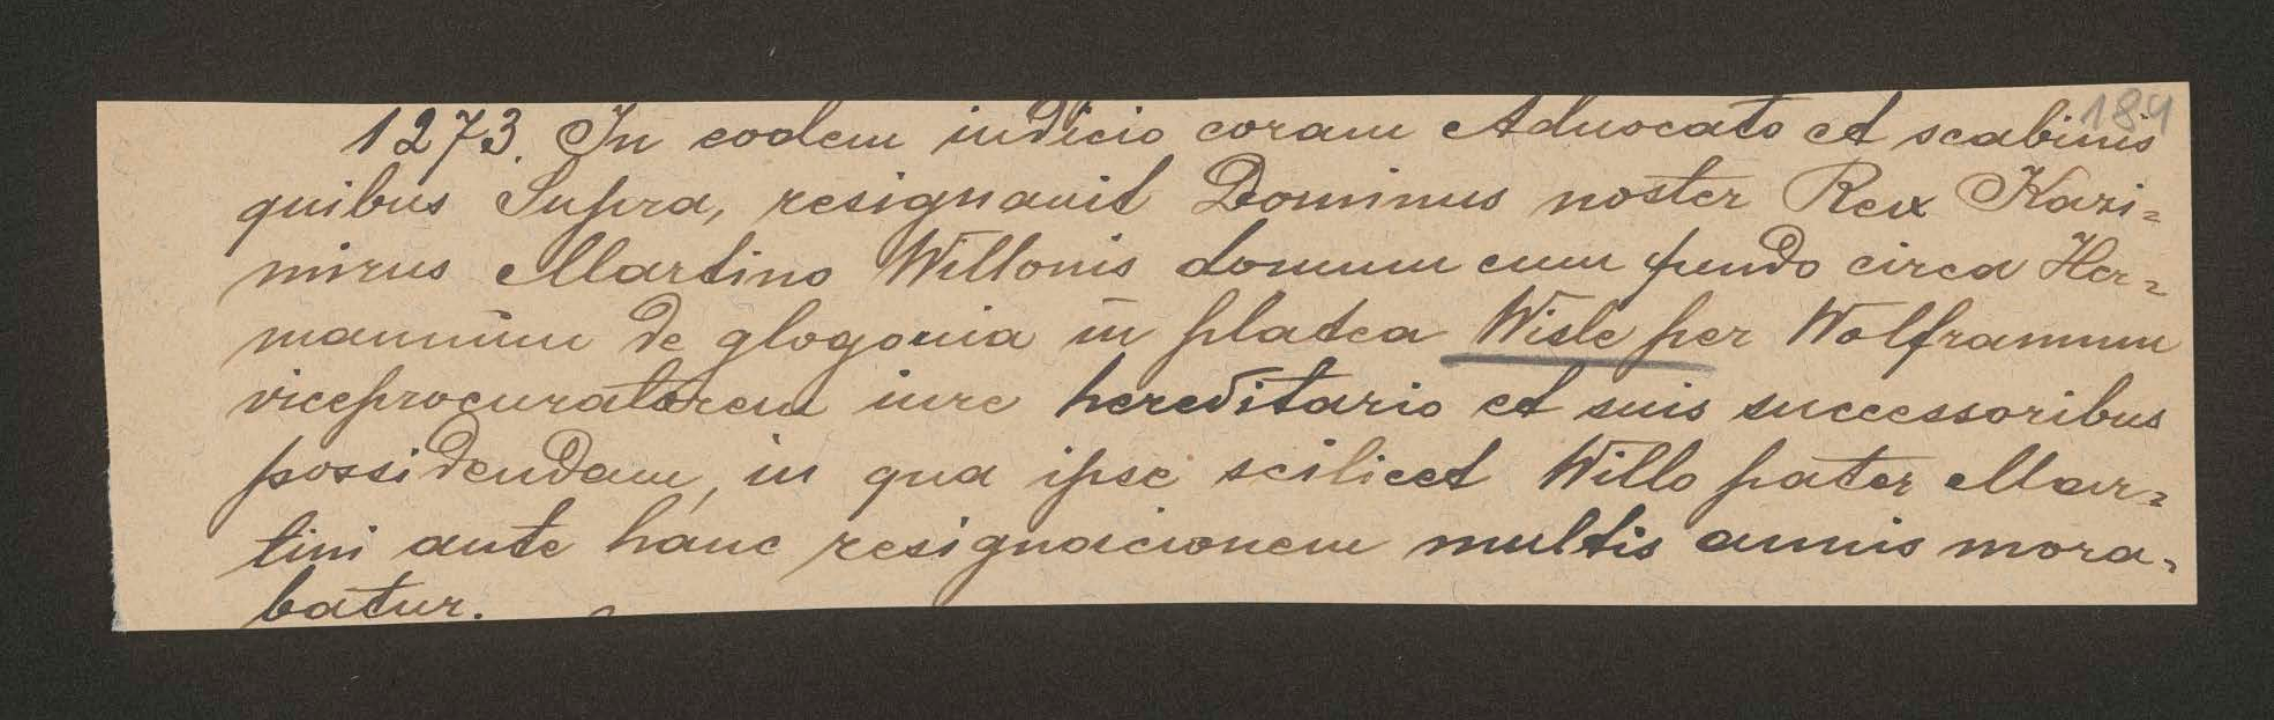 184
1273. In eodem iudicio coram Aduocato et scabinis
quibus Supra, resignauit Dominus noster Rex Kazi=
mirus Martino Willonis domum cum fundo circa Her=
mannum de glogouia in platea Wisle per Wolframum
viceprocuratorem iure hereditario et suis successoribus
possidendam, in qua ipse scilicet Willo pater Mar=
tini ante hanc resignacionem multis annis mora=
batur.